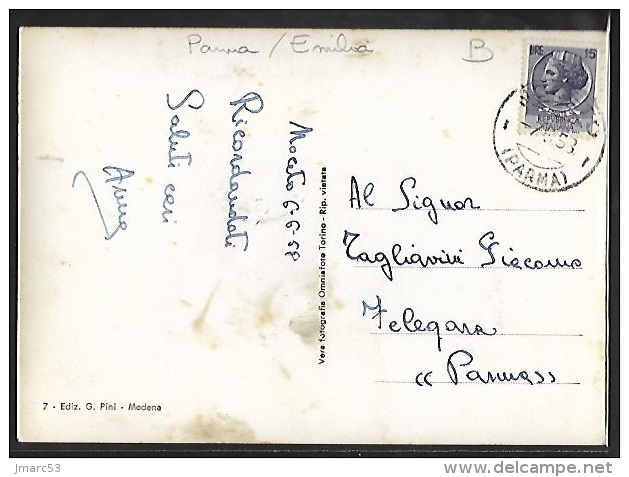 Parma / Emilia
B
LIRE 15
(PARMA)
Noceto 6-6-58
Ricordandoti
Saluti cari
Anna
Al Signor
Tagliavini Giacomo
Felegara
«Parma»
Vera fotografia Omniafoto Torino - Rip. vietata
7 - Ediz. G. Pini - Modena
jmarc53
www.delcampe.net